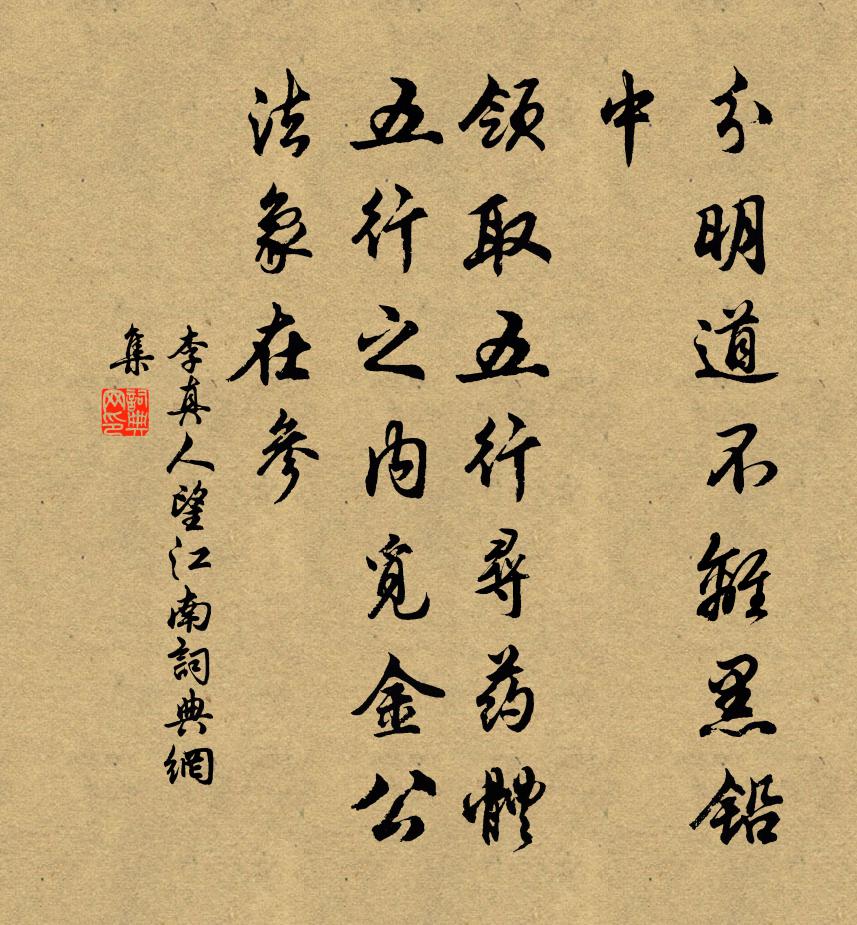 分明道不離黑鉛
中
領取五行尋药體
五行之内覓金公
法象在參
李真人望江南詞典網
集
詞典
网印